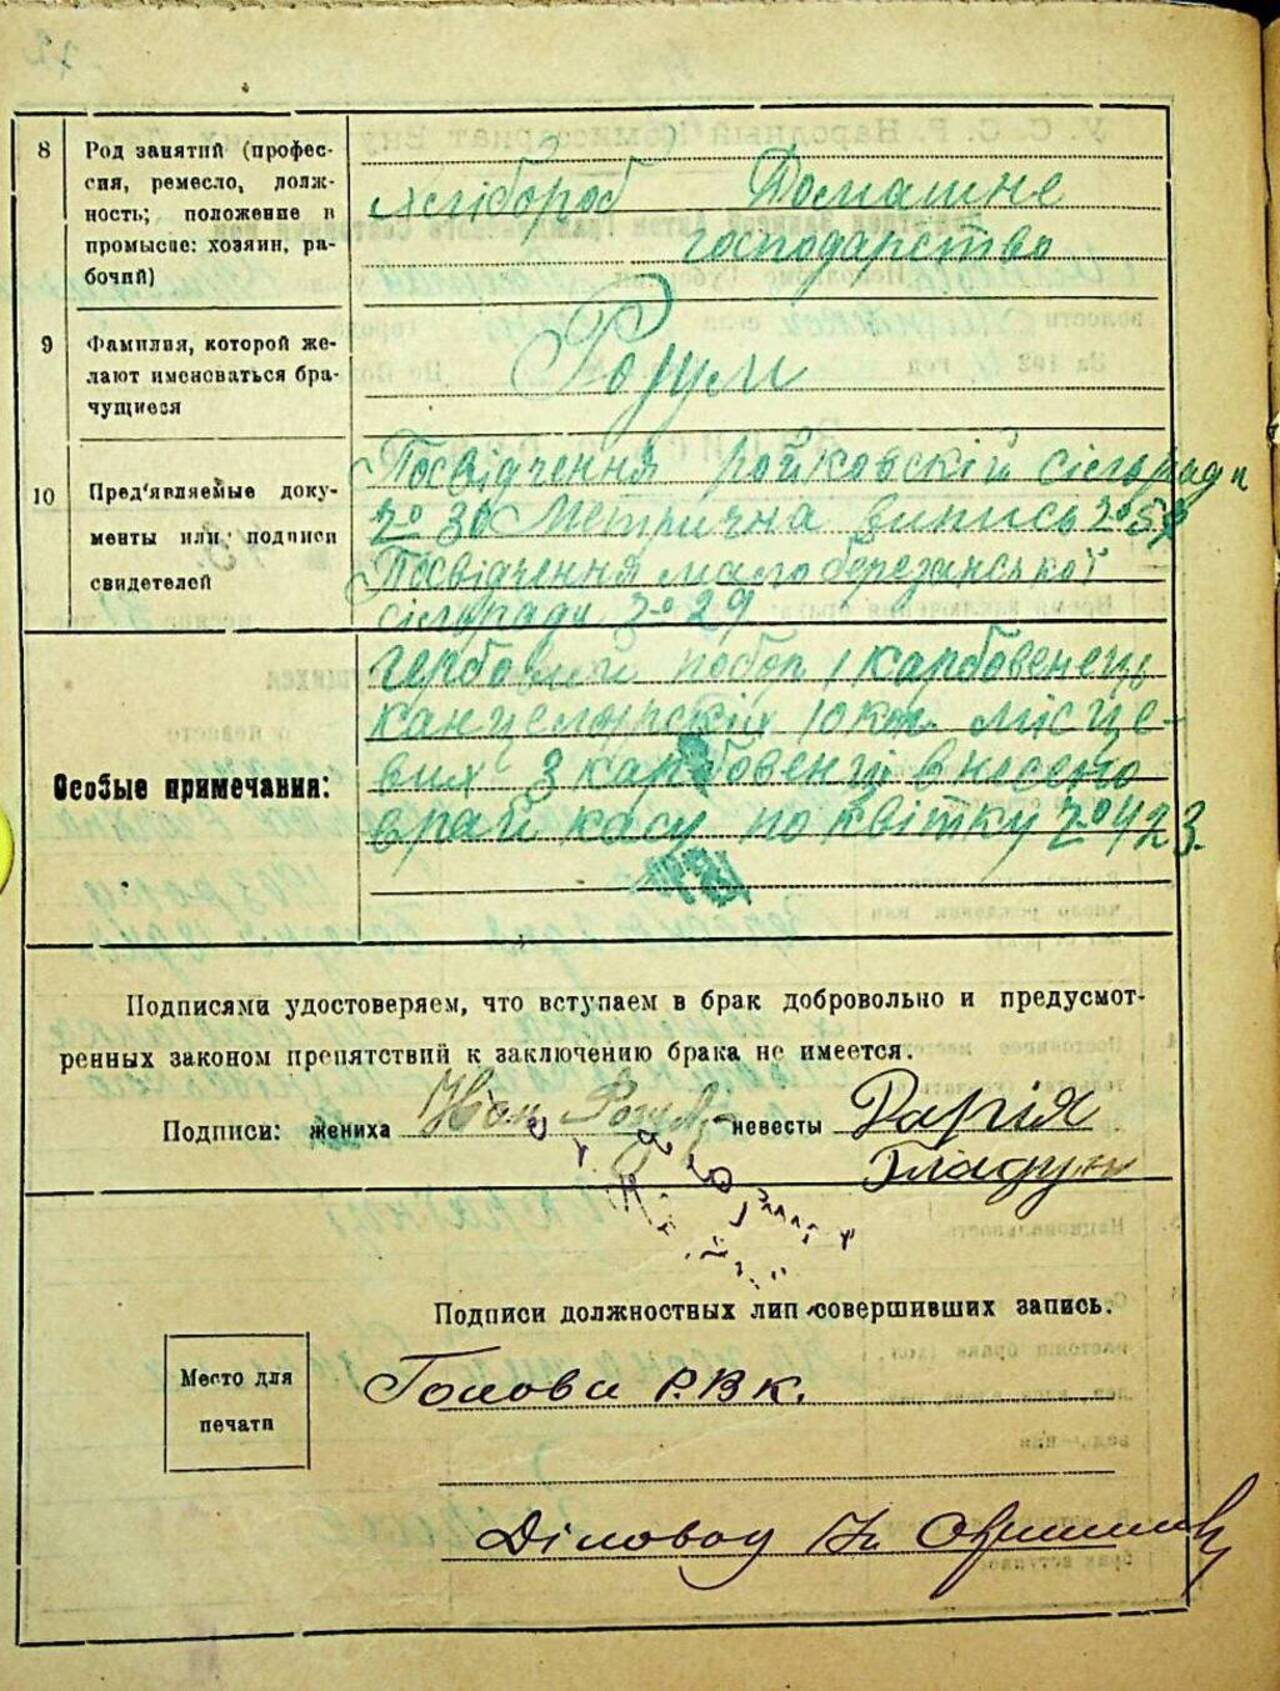 8
Род занятий (профес-
сия, ремесло, долж-
ность; положение в
промысле: хозяин, ра-
бочий)
Хлібороб Домашнє
господарство
9
Фамилия, которой же-
лают именоваться бра-
чущиеся
10
Пред'являемые доку-
менты или подписи
свидетелей
Посвідчення сільради
№ 30 Метрична випись №
Посвідчення малоберезанської
сільради № 29
Особые примечания:
Гербовий побор 1 карбованець
канцелярских 10 коп. місце-
вих 3 внесено
в рай касу по квітку № 423.
Подписями удостоверяем, что вступаем в брак добровольно и предусмот-
ренных законом препятствий к заключению брака не имеется.
Подписи: жениха Іван невесты Дарія
Гладун
Подписи должностных лиц совершивших запись.
Место для
печати
Голова Р.В.К.
Діловод